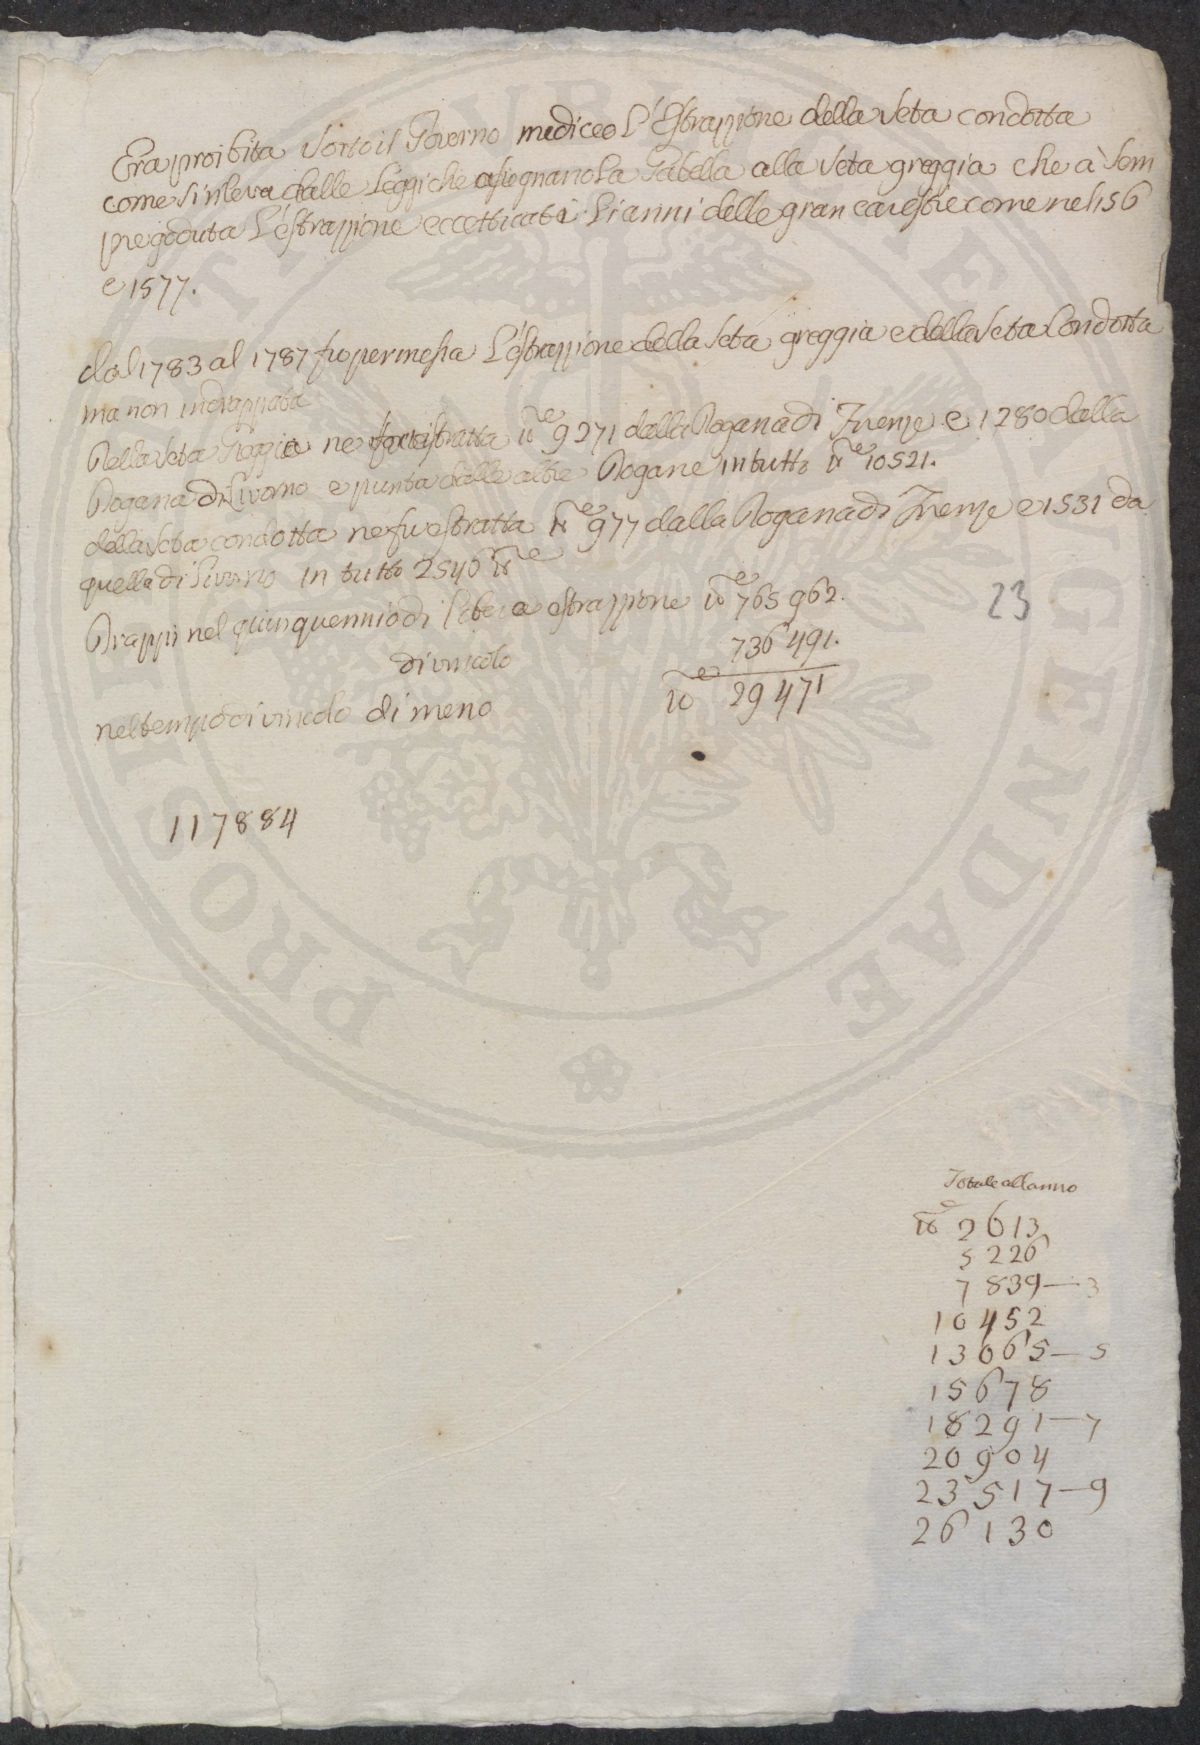 Era proibita sotto il Governo mediceo L'Estrazzione della seta condotta
come si rileva dalle Leggi che assegnano la Gabella alla seta greggia che à sem
pre goduta L'estrazzione eccettuati Li anni delle gran carestie come nel 156
e 1577.
dal 1783 al 1787 fu permessa L'estrazzione della seta greggia e della seta Condotta
ma non indrappata
Della seta Greggia ne fu estratta lb.e 9271 dalla Dogana di Firenze e 1280 dalla
Dogana di Livorno e punta dalle altre Dogane in tutto lb.e 10521.
della seta condotta ne fu estratta lb.e 977 dalla Dogana di Firenze e 1531 da
quella di Livorno in tutto 2546 lb.e
Drappi nel quinquennio di libera estrazzione lb.e 765 962.
di vincolo 736 491.
nel tempo di vincolo di meno lb.e 29 471
23
117884
Totale all anno
lb.e 2613
5226
7839 — 3
10452
13065 — 5
15678
18291 — 7
20904
23517 — 9
26130
PROSPERITATI PUBLICAE AUGENDAE